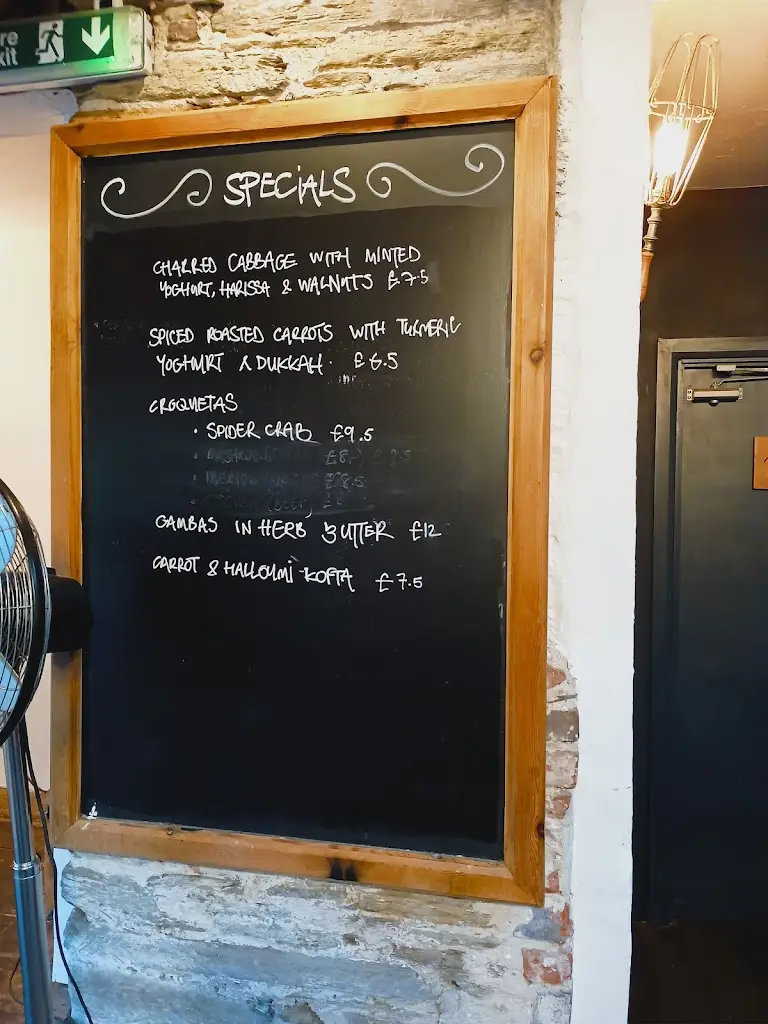 SPECIALS
CHARRED CABBAGE WITH MINTED
YOGHURT, HARISSA & WALNUTS £7.5
SPICED ROASTED CARROTS WITH TURMERIC
YOGHURT & DUKKAH. £6.5
CROQUETAS
• SPIDER CRAB £9.5
£8.5
GAMBAS IN HERB BUTTER £12
CARROT & HALLOUMI KOFTA £7.5